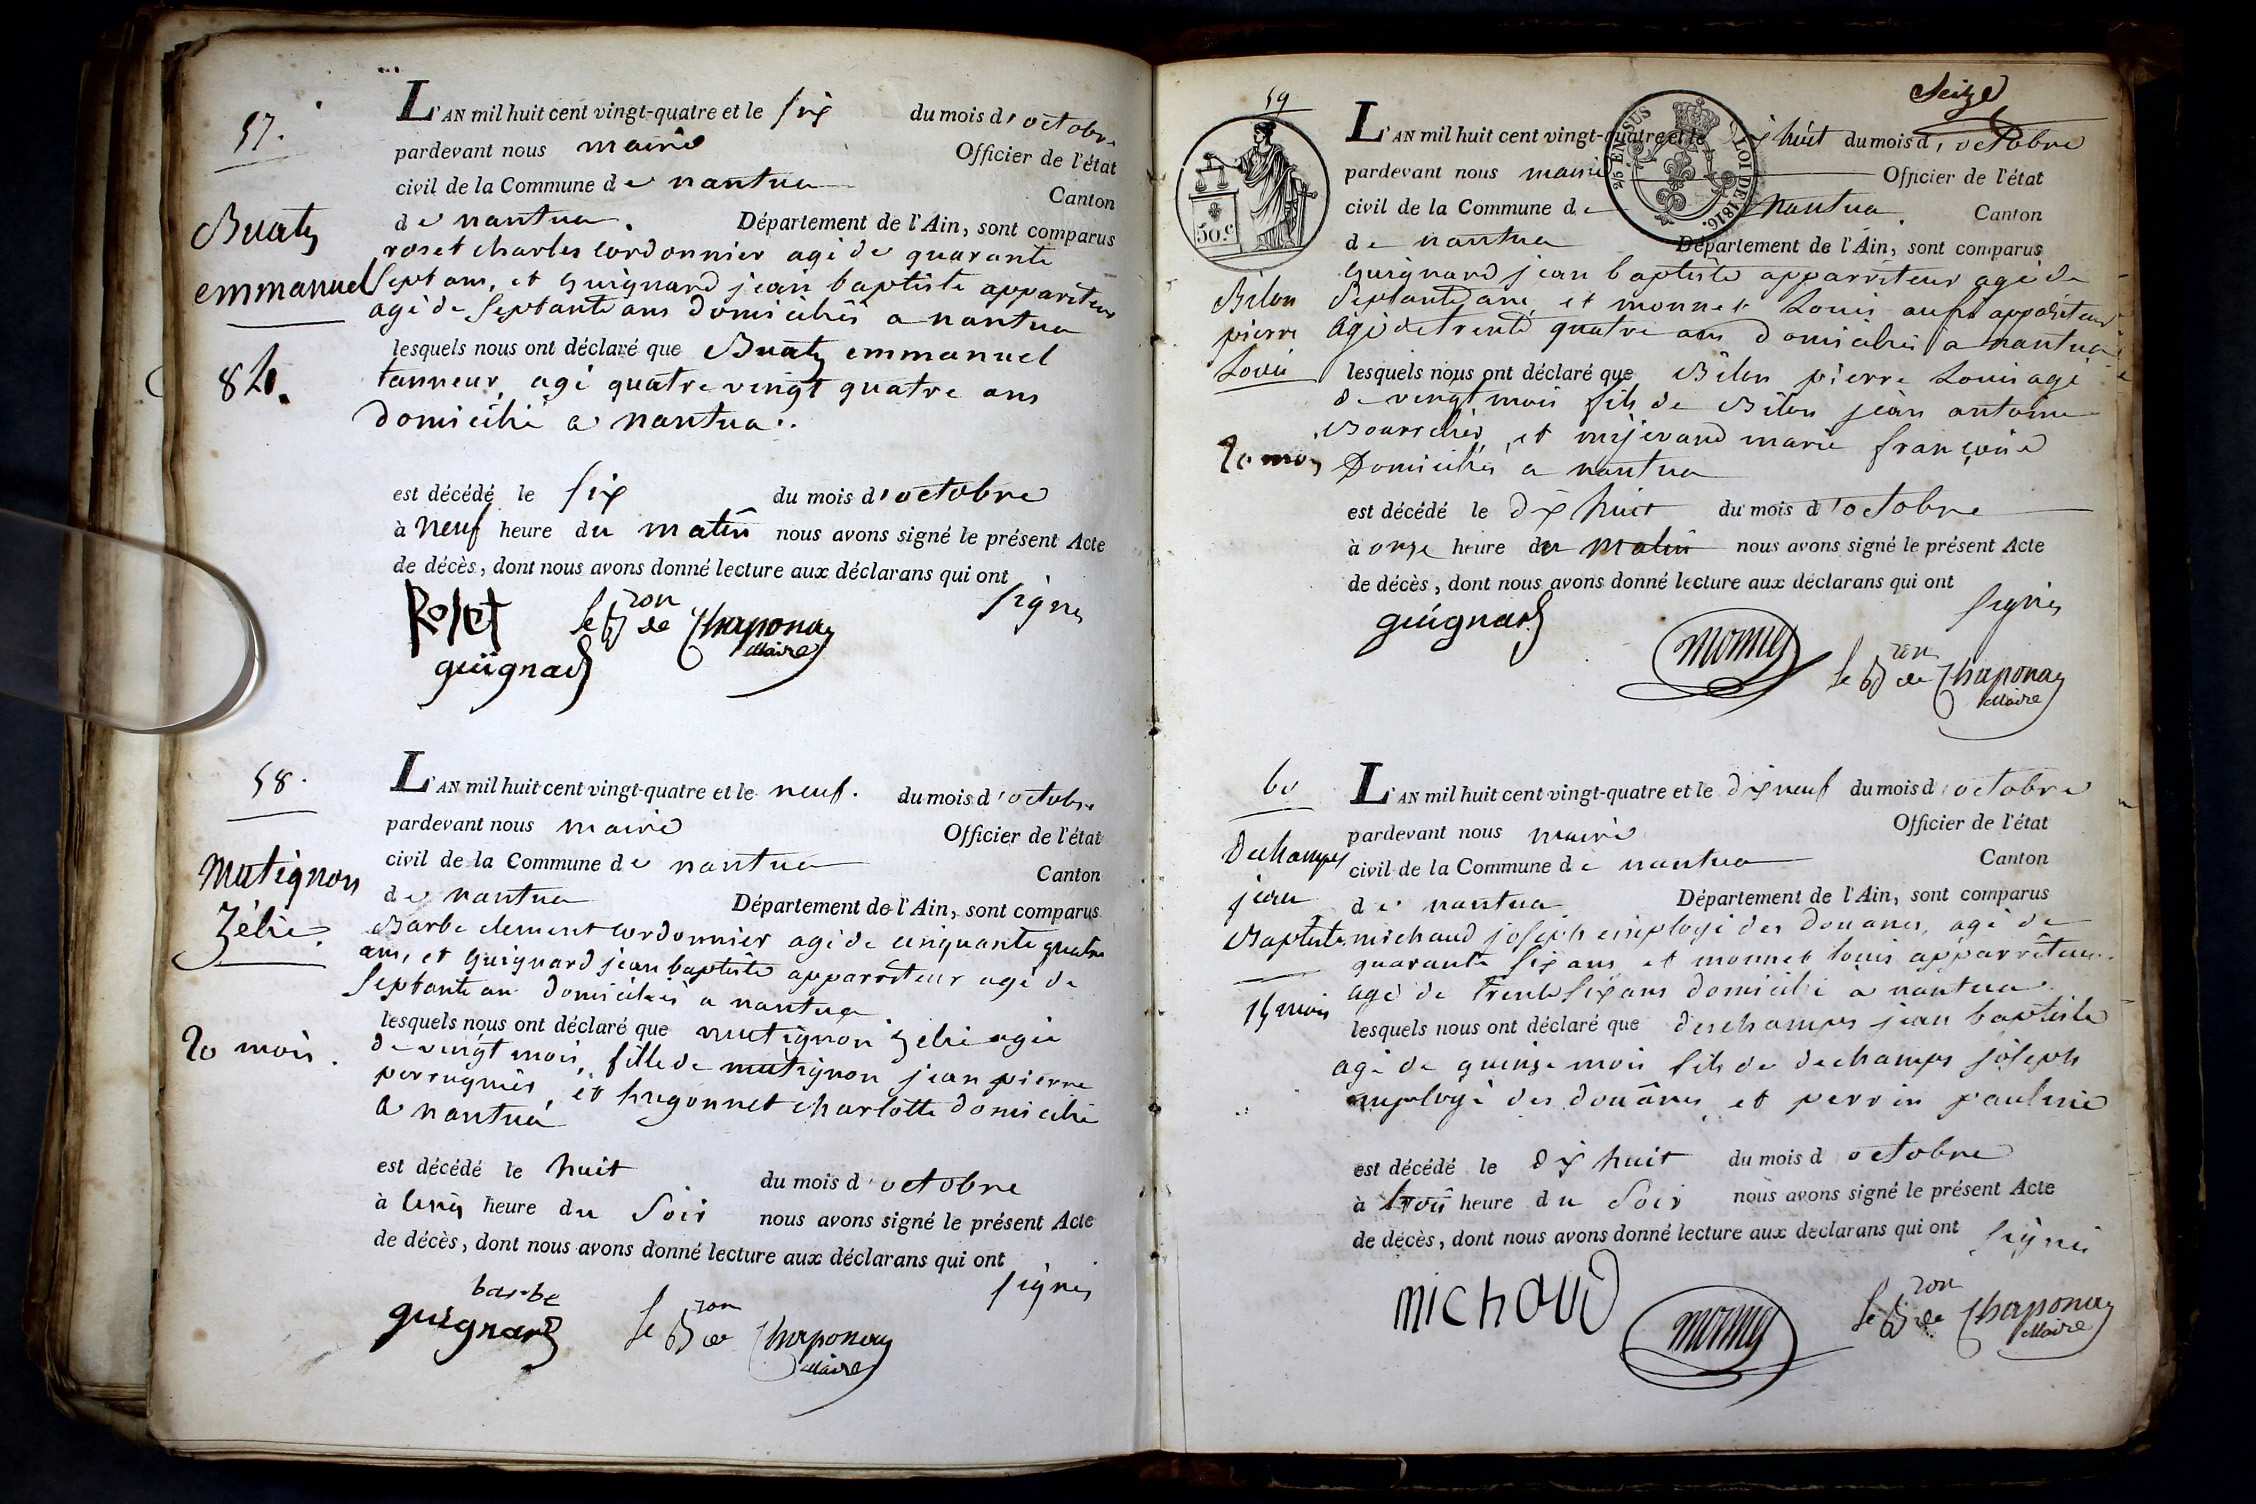 57.
Buaty
emmanuel
84.
L'AN mil huit cent vingt-quatre et le six du mois d'octobre
pardevant nous maire Officier de l'état
civil de la Commune de nantua Canton
de nantua. Département de l'Ain, sont comparus
roset charles cordonnier agé de quarante
Sept ans, et Guignard jean baptiste appariteur
agé de Septante ans domiciliés a nantua
lesquels nous ont déclaré que Buaty emmanuel
tanneur, agé quatre vingt quatre ans
domicilié a nantua.
est décédé le six du mois d'octobre
à neuf heure du matin nous avons signé le présent Acte
de décès, dont nous avons donné lecture aux déclarans qui ont
signés
Roset le Bon de Chaponay
Maire
guignard
58.
Mutignon
Zélie.
20 mois.
L'AN mil huit cent vingt-quatre et le neuf. du mois d'octobre
pardevant nous maire Officier de l'état
civil de la Commune de nantua Canton
de nantua Département de l'Ain, sont comparus
Barbe clement cordonnier agé de cinquante quatre
ans, et Guignard jean baptiste apparriteur agé de
Septante an domiciliés a nantua
lesquels nous ont déclaré que mutignon Zelie agée
de vingt mois, fille de mutignon jean pierre
perruquier, et hugonnet charlotte domicilié
a nantua
est décédé le huit du mois d'octobre
à cinq heure du Soir nous avons signé le présent Acte
de décès, dont nous avons donné lecture aux déclarans qui ont
signés
barbe
guignard le Bon de Chaponay
Maire
Seize
59
50.c
25 EN SUS LOI DE 1816.
Bilon
pierre
Louis
20 mois
L'AN mil huit cent vingt-quatre et le dix huit du mois d'octobre
pardevant nous maire Officier de l'état
civil de la Commune de nantua. Canton
de nantua Département de l'Ain, sont comparus
Guignard jean baptiste apparriteur agé de
Septante ans et monnet Louis aussi apparriteur
agé de trente quatre ans domiciliés a nantua
lesquels nous ont déclaré que Bilon pierre Louis agé
de vingt mois fils de Bilon jean antoine
Bourrelier, et mijevand marie françoise
Domiciliés a nantua
est décédé le dix huit du mois d'octobre
à onze heure du matin nous avons signé le présent Acte
de décès, dont nous avons donné lecture aux déclarans qui ont
signés
guignard
monnet le Bon de Chaponay
Maire
60
Dechamps
jean
Baptiste
15 mois
L'AN mil huit cent vingt-quatre et le dix neuf du mois d'octobre
pardevant nous maire Officier de l'état
civil de la Commune de nantua Canton
de nantua Département de l'Ain, sont comparus
michaud joseph employé des douanes, agé de
quarante six ans et monnet louis apparriteur
agé de trente six ans domicilié a nantua
lesquels nous ont déclaré que deschamps jean baptiste
agé de quinze mois fils de dechamps joseph
employé des douânes et perrin pauline
est décédé le dix huit du mois d octobre
à trois heure du Soir nous avons signé le présent Acte
de décès, dont nous avons donné lecture aux declarans qui ont signés
michaud
monnet le Bon de Chaponay
Maire